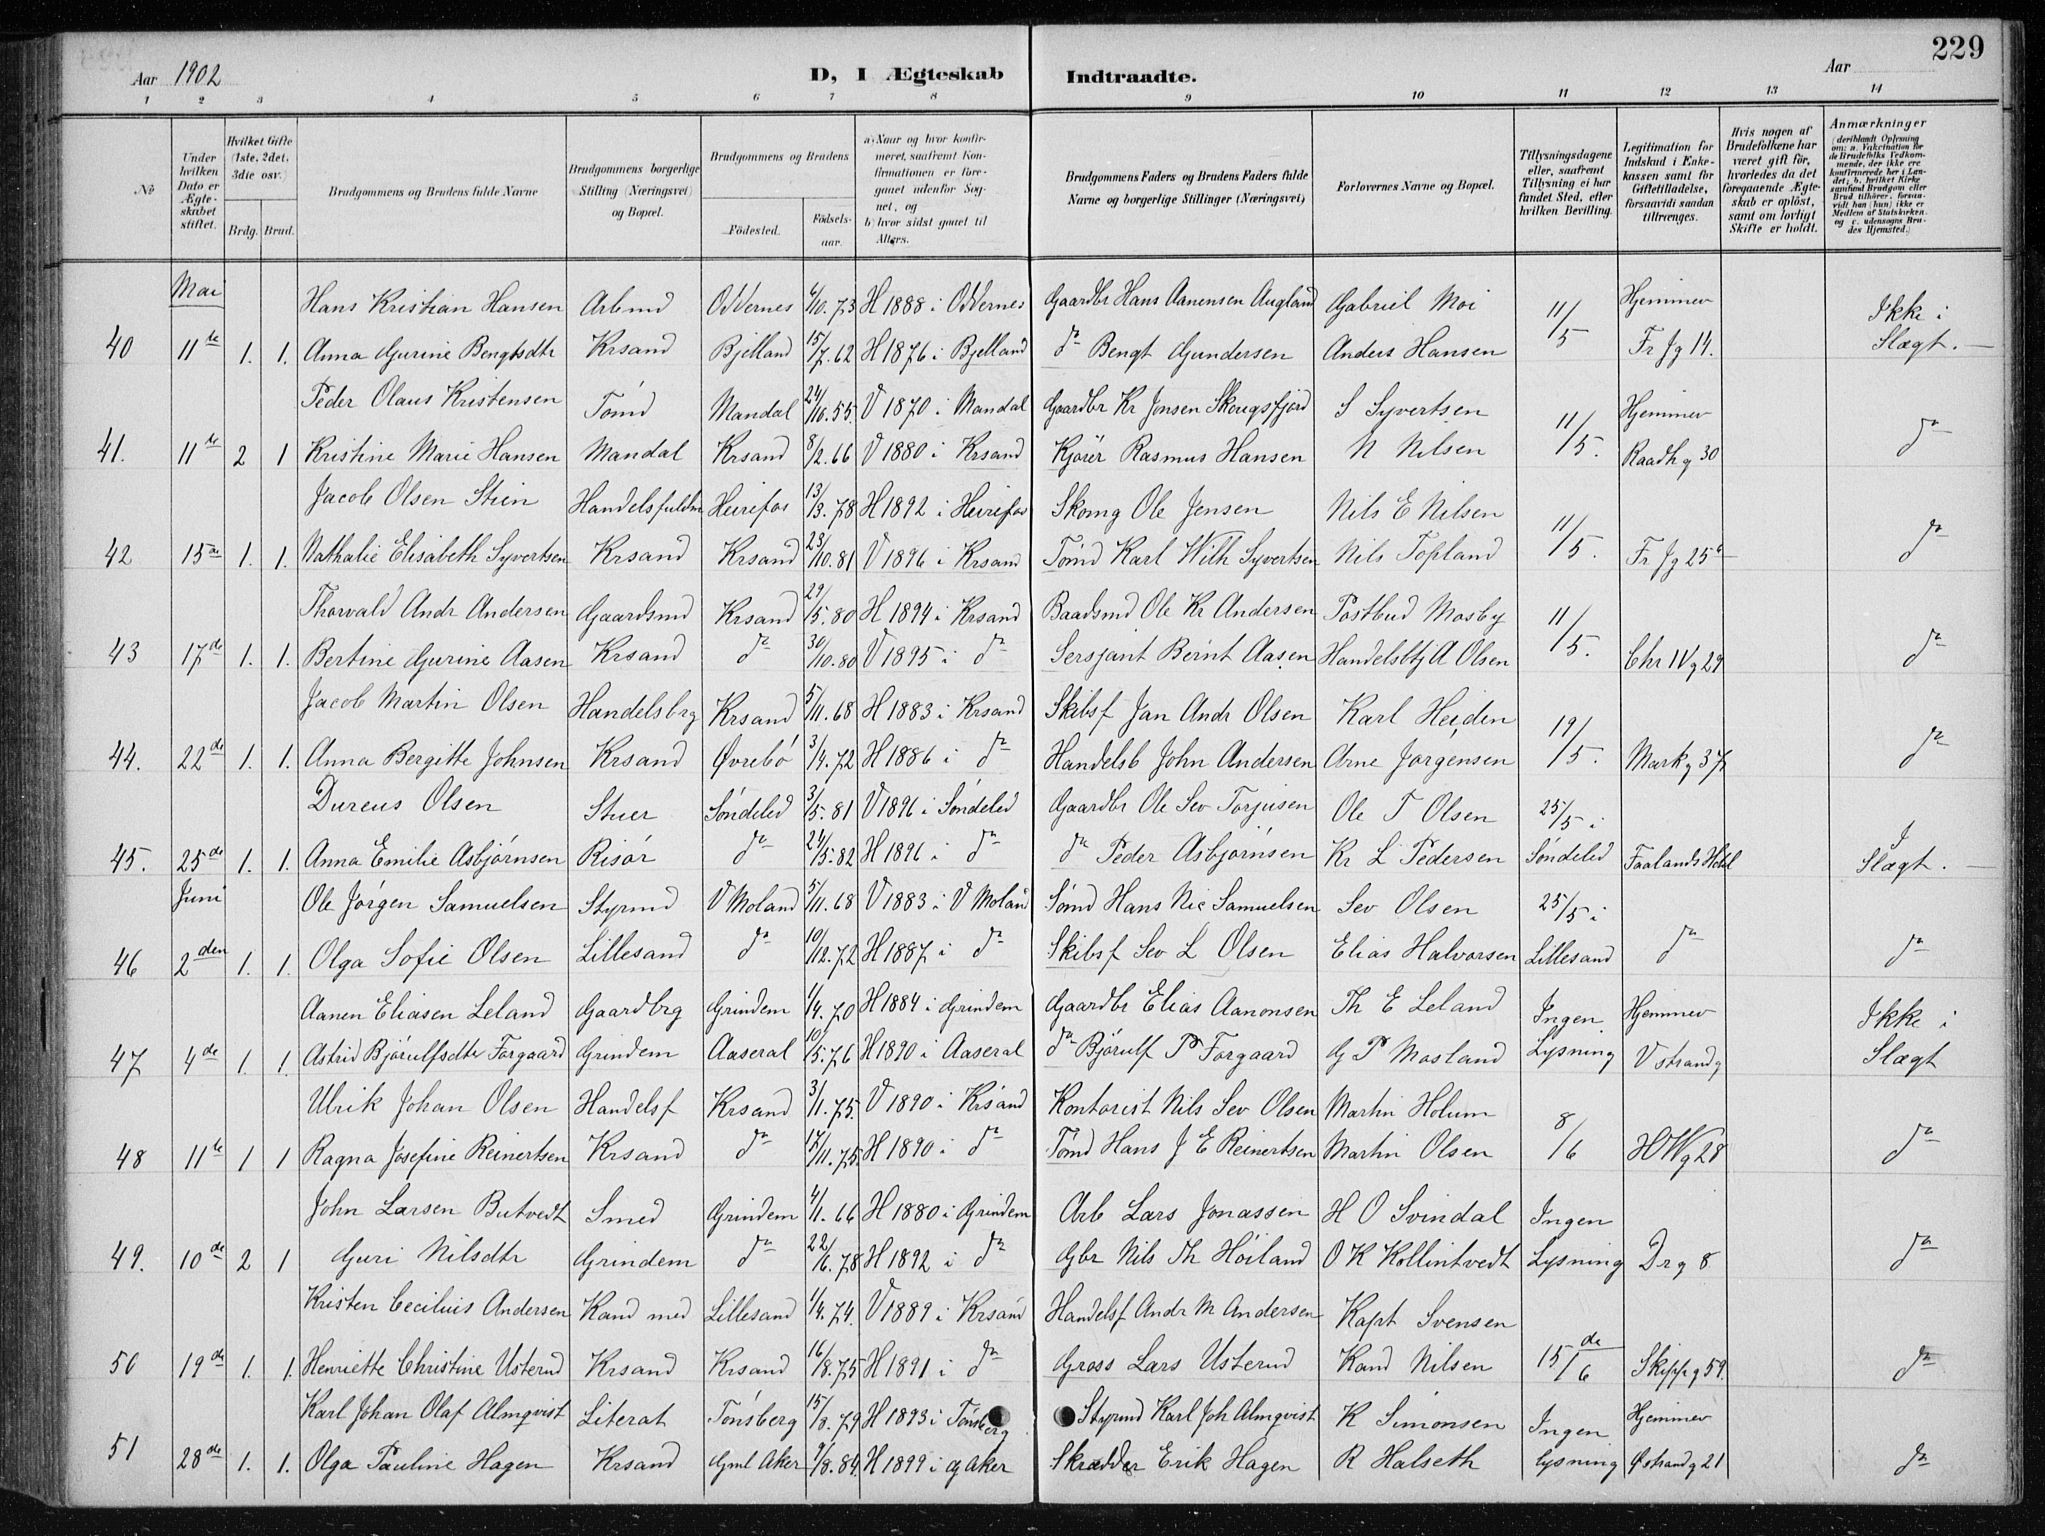 229
Aar 1902
D, I Ægteskab Indtraadte.
Aar
1 2 3 4 5 6 7 8 9 10 11 12 13 14
No
Under hvilken Dato er Ægteskabet stiftet.
Hvilket Gifte (1ste, 2det, 3die osv.)
Brdg. Brud.
Brudgommens og Brudens fulde Navne
Brudgommens borgerlige Stilling (Næringsvei) og Bopæl.
Brudgommens og Brudens
Födested. Födselsaar.
a) Naar og hvor konfirmeret, saafremt Konfirmationen er foregaaet udenfor Sognet, og
b) hvor sidst gaaet til Alters.
Brudgommens Faders og Brudens Faders fulde Navne og borgerlige Stillinger (Næringsvei)
Forlovernes Navne og Bopæl.
Tillysningsdagene eller, saafremt Tillysning ei har fundet Sted, efter hvilken Bevilling.
Legitimation for Indskud i Enkekassen samt for Giftetilladelse, forsaavidt saadan tiltrænges.
Hvis nogen af Brudefolkene har været gift för, hvorledes da det foregaaende Ægteskab er oplöst, samt om lovligt Skifte er holdt.
Anmærkninger
(deriblandt Oplysning om: a. Vakcination for de Brudefolks Vedkommende, der ikke ere konfirmerede her i Landet; b. hvilket Kirkesamfund Brudgom eller Brud tilhörer, forsaavidt han (hun) ikke er Medlem af Statskirken og c. udensogns Brudes Hjemsted.)
Mai
Hans Kristian Hansen Arbmd Oddernes 6/10.73 H 1888 i Oddernes Gaardbr Hans Aanensen Augland Gabriel Moi 11/5 Hjemmev Ikke i
40 11te 1. 1. Anna Gurine Bengtsdtr Krsand Bjelland 15/7.62 H 1876 i Bjelland do Bengt Gundersen Anders Hansen Fr Jg 14. Slægt.
Peder Olaus Kristensen Tømd Mandal 24/10.55. V 1870 i Mandal Gaardbr Kr Jensen Skougsfjord S Syvertsen 11/5. Hjemmev do
41. 11te 2 1 Kristine Marie Hansen Mandal Krsand 8/2.66 V 1880 i Krsand Kjører Rasmus Hansen N Nilsen Raadhg 30
Jacob Olsen Stien Handelsfuldm Heirefos 13/3.78 H 1892 i Heirefos Skomg Ole Jensen Nils E Nilsen 11/5. do
42 15de 1. 1. Nathalie Elisabeth Syvertsen Krsand Krsand 23/10.81 V 1896 i Krsand Tømd Karl Wilh Syvertsen Nils Topland Fr Jg 25b
Thorvald Andr Andersen Gaardsmd Krsand 29/5.80 H 1894 i Krsand Baadsmd Ole Kr Andersen Postbud Mosby 11/5. do
43 17de 1. 1. Bertine Gurine Aasen Krsand do 30/10.80 V 1895 i do Sersjant Bernt Aasen Handelsbtj A Olsen Chr IV g 29
Jacob Martin Olsen Handelsbrg Krsand 5/11.68 H 1883 i Krsand Skibsf Jan Andr Olsen Karl Heiden 19/5. do
44. 22de 1. 1. Anna Bergitte Johnsen Krsand Øvrebö 3/4.72 H 1886 i do Handelsb John Andersen Arne Jørgensen Mark g 37
Dureus Olsen Stuer Söndeled 3/5.81 V 1896 i Söndeled Gaardbr Ole Sev Torjusen Ole T Olsen 25/5 i I
45. 25de 1. 1. Anna Emilie Asbjörnsen Risör do 24/5.82 H 1896 i do do Peder Asbjörnsen Kr L Pedersen Söndeled Faalands Hotel Slægt.
Juni
Ole Jørgen Samuelsen Styrmd V Moland 5/11.68 V 1883 i V Moland Sømd Hans Nic Samuelsen Sev Olsen 25/5 i
46 2den 1. 1. Olga Sofie Olsen Lillesand do 10/12.72 H 1887 i do Skibsf Sev L Olsen Elias Halvorsen Lillesand do do
Aanen Eliasen Leland Gaardbrg Grindem 1/4.70 H 1884 i Grindem Gaardbr Elias Aanonsen Th E Leland Ingen Hjemmev Ikke i
47 4de 1. 1. Astrid Bjørulfsdtr Forgaard Grindem Aaseral 10/5.76 H 1890 i Aaseral do Bjørulf P Forgaard G P Mosland Lysning V strandg Slægt
Ulrik Johan Olsen Handelsf Krsand 3/1.75. V 1890 i Krsand Kontorist Nils Sev Olsen Martin Holum 8/6
48 11te 1 1 Ragna Josefine Reinertsen Krsand do 17/11.75. H 1890 i do Tømd Hans J E Reinertsen Martin Olsen H W g 28 do
John Larsen Butvedt Smed Grindem 4/1.66 H 1880 i Grindem Arb Lars Jonassen H O Svindal Ingen
49. 10de 2 1 Guri Nilsdtr Grindem do 22/6.78 H 1892 i do Gbr Nils Th Høiland O K Kollintvedt Lysning Dr g 8 do
Kristen Cecilius Andersen Kand med Lillesand 1/4.74. V 1889 i Krsand Handelsf Andr M Andersen Kapt Svensen
50 19de 1. 1. Henriette Christine Usterud Krsand Krsand 16/8.75 H 1891 i do Gross Lars Usterud Kand Nilsen 15de/6 Skippg 59. do
Karl Johan Olaf Almqvist Literat Tönsberg 15/8.79 H 1893 i Tønsberg Styrmd Karl Joh Almqvist K Simonsen Ingen Hjemmev
51 28de 1. 1. Olga Pauline Hagen Krsand Gml Aker 9/8.84. H 1899 i G Aker Skrædder Erik Hagen R Halseth lysning Østrandg 21 do